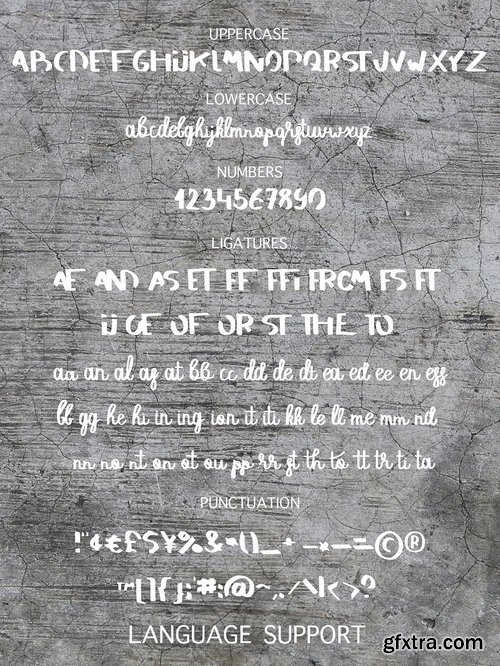 UPPERCASE
ABCDEFGHIJKLMNOPQRSTUVWXYZ
LOWERCASE
abcdefghijklmnopqrstuvwxyz
NUMBERS
1234567890
LIGATURES
AE AND AS ET FF FFi FROM FS FT
IJ OE OF OR ST THE TO
aa an al as at bb cc dd de ds ea ed ee en eff
ff gg he hi in ing ion it iti kk le ll me mm nd
nn no nt on ot ou pp rr st th to tt tr ti ta
PUNCTUATION
!"¢€£$¥%&*()_+ -×—–=©®
™[]{};:'#:@~,./\|<>?
LANGUAGE SUPPORT
gfxtra.com